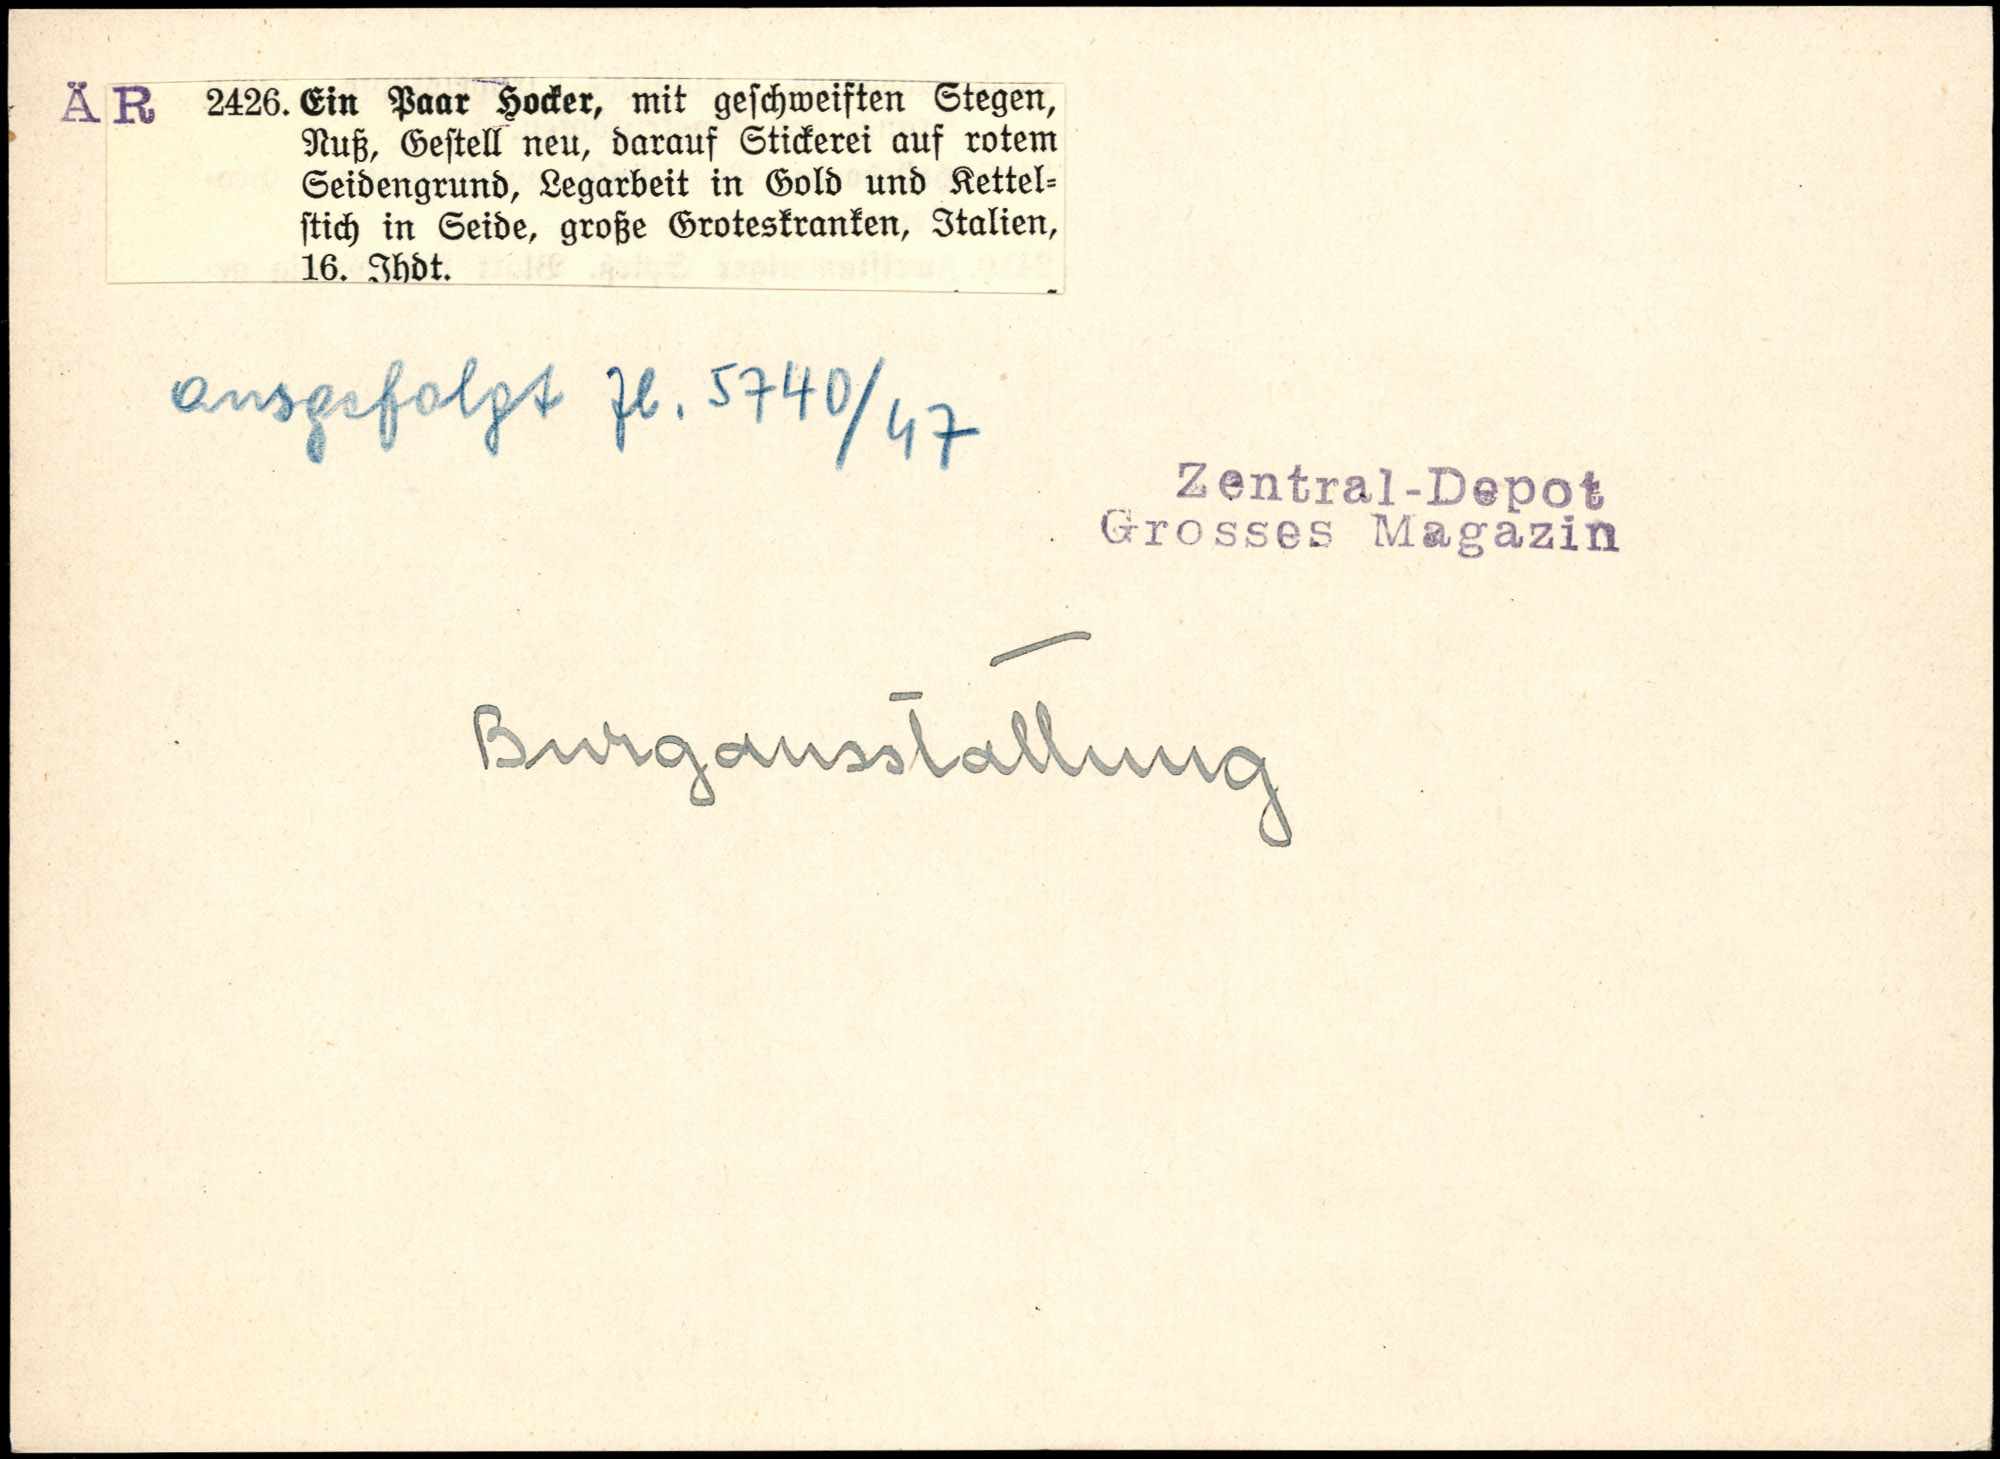 ÄR 2426. Ein Paar Hocker, mit geschweiften Stegen,
Nuß, Gestell neu, darauf Stickerei auf rotem
Seidengrund, Legarbeit in Gold und Kettel-
stich in Seide, große Groteskranken, Italien,
16. Jhdt.
ausgefolgt Zl. 5740/47
Zentral-Depot
Grosses Magazin
Burgausstallung